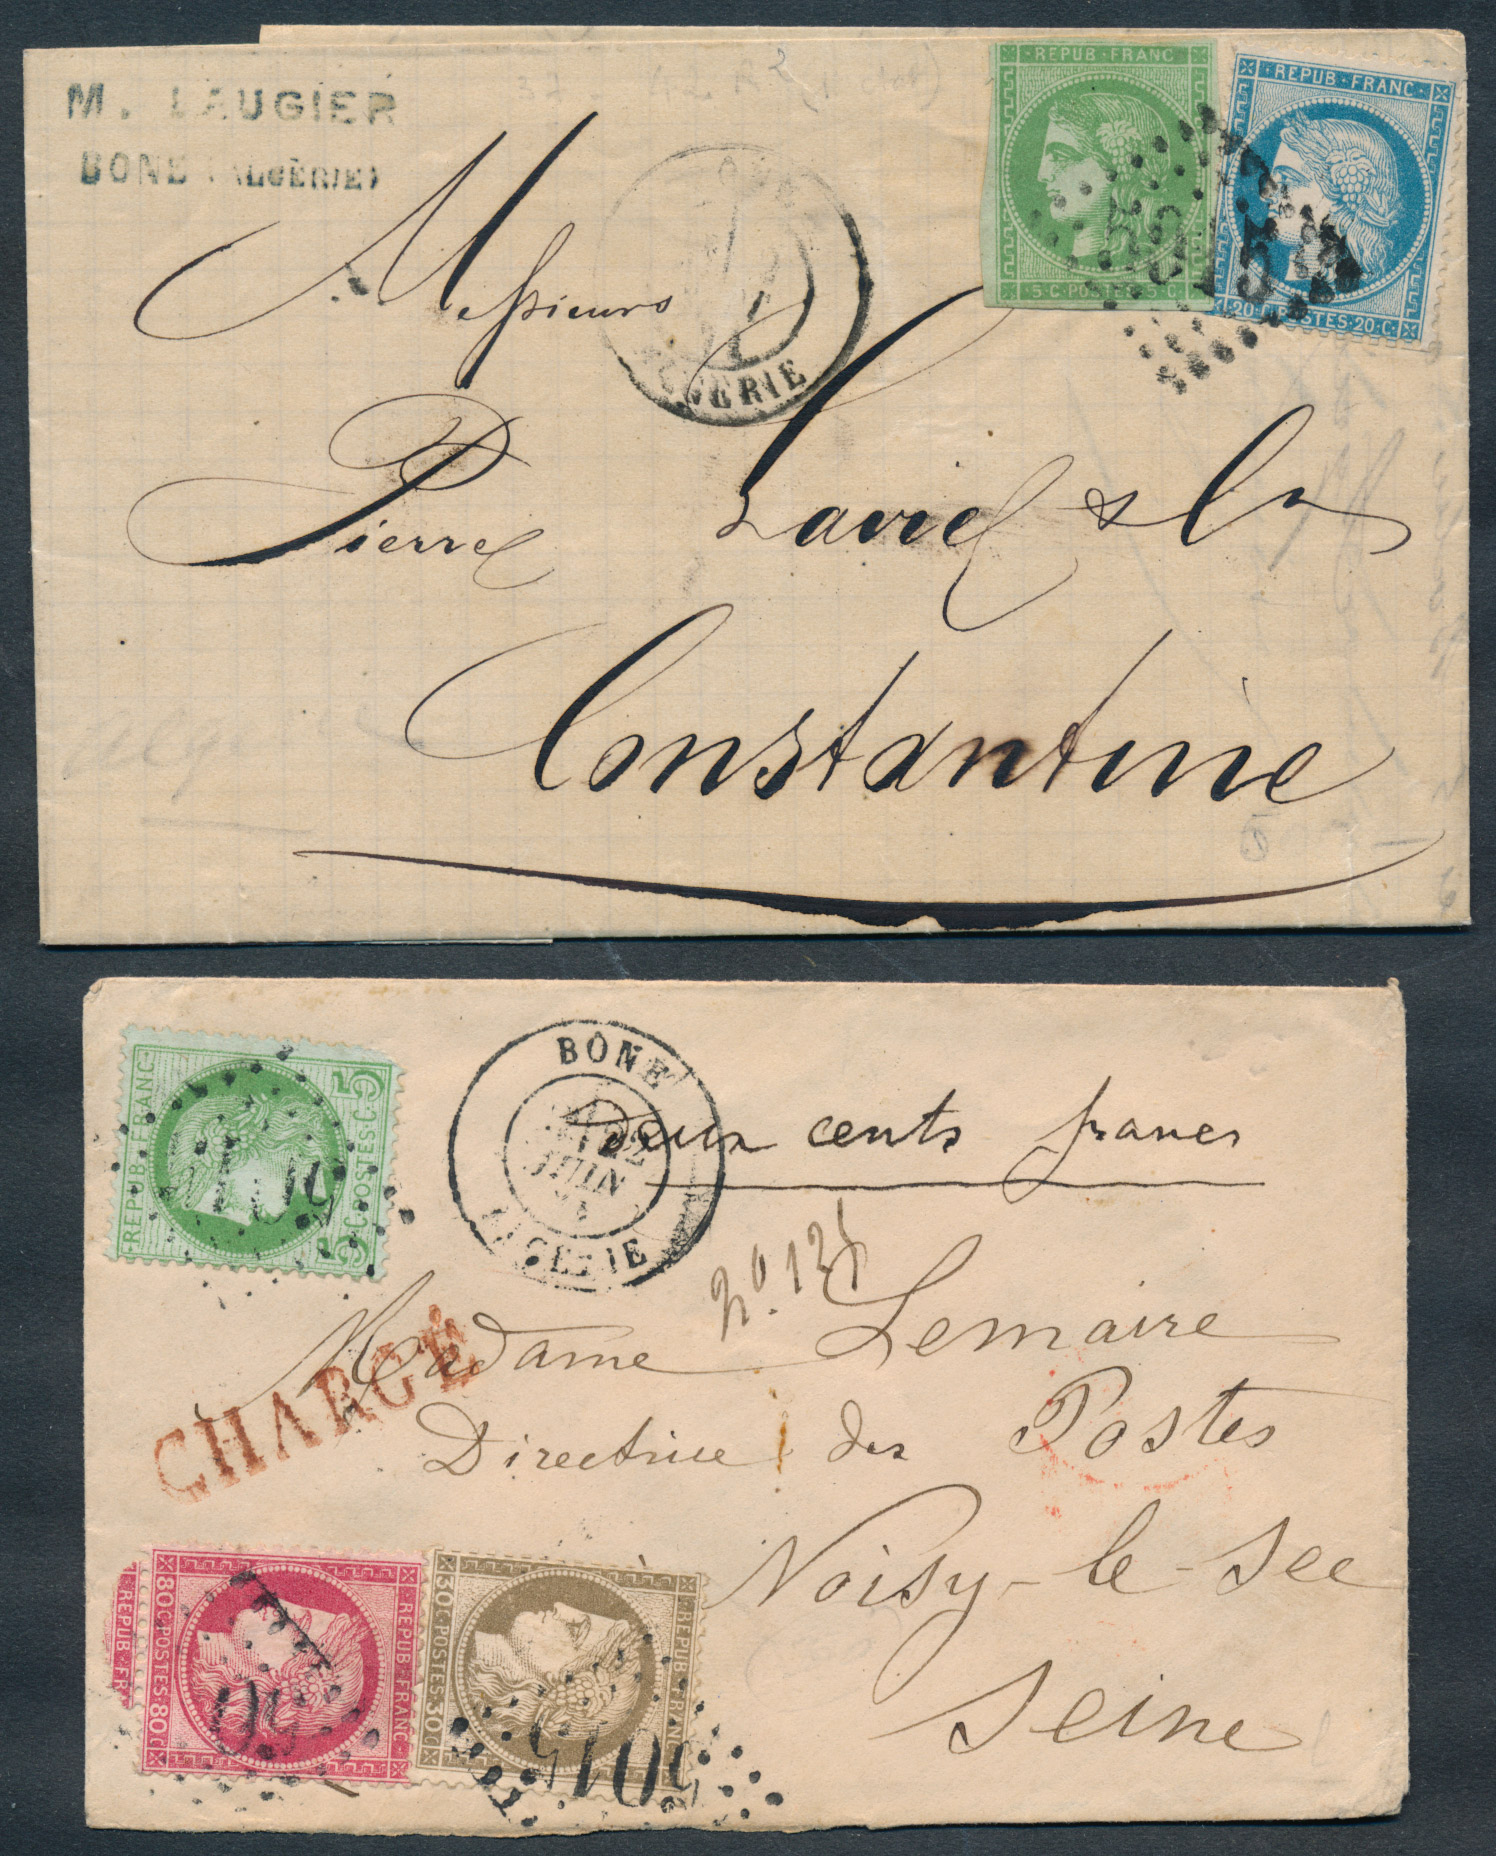 M. LAUGIER
BONE (ALGÉRIE)
REPUB·FRANC
5·C·POSTES·5·C
REPUB·FRANC
20·C·POSTES·20·C
5015
ALGERIE
Messieurs
Pierre Lavie & Cie
Constantine
REPUB·FRANC
5 C·POSTES·C 5
BÔNE
22
JUIN
ALGERIE
deux cents francs
CHARGÉ
Madame Lemaire
Directrice des Postes
Noisy-le-Sec
Seine
REPUB·FR
80·C·POSTES·80·C
REPUB·FRANC
30·C·POSTES·30·C
REPUB·FRANC
5015